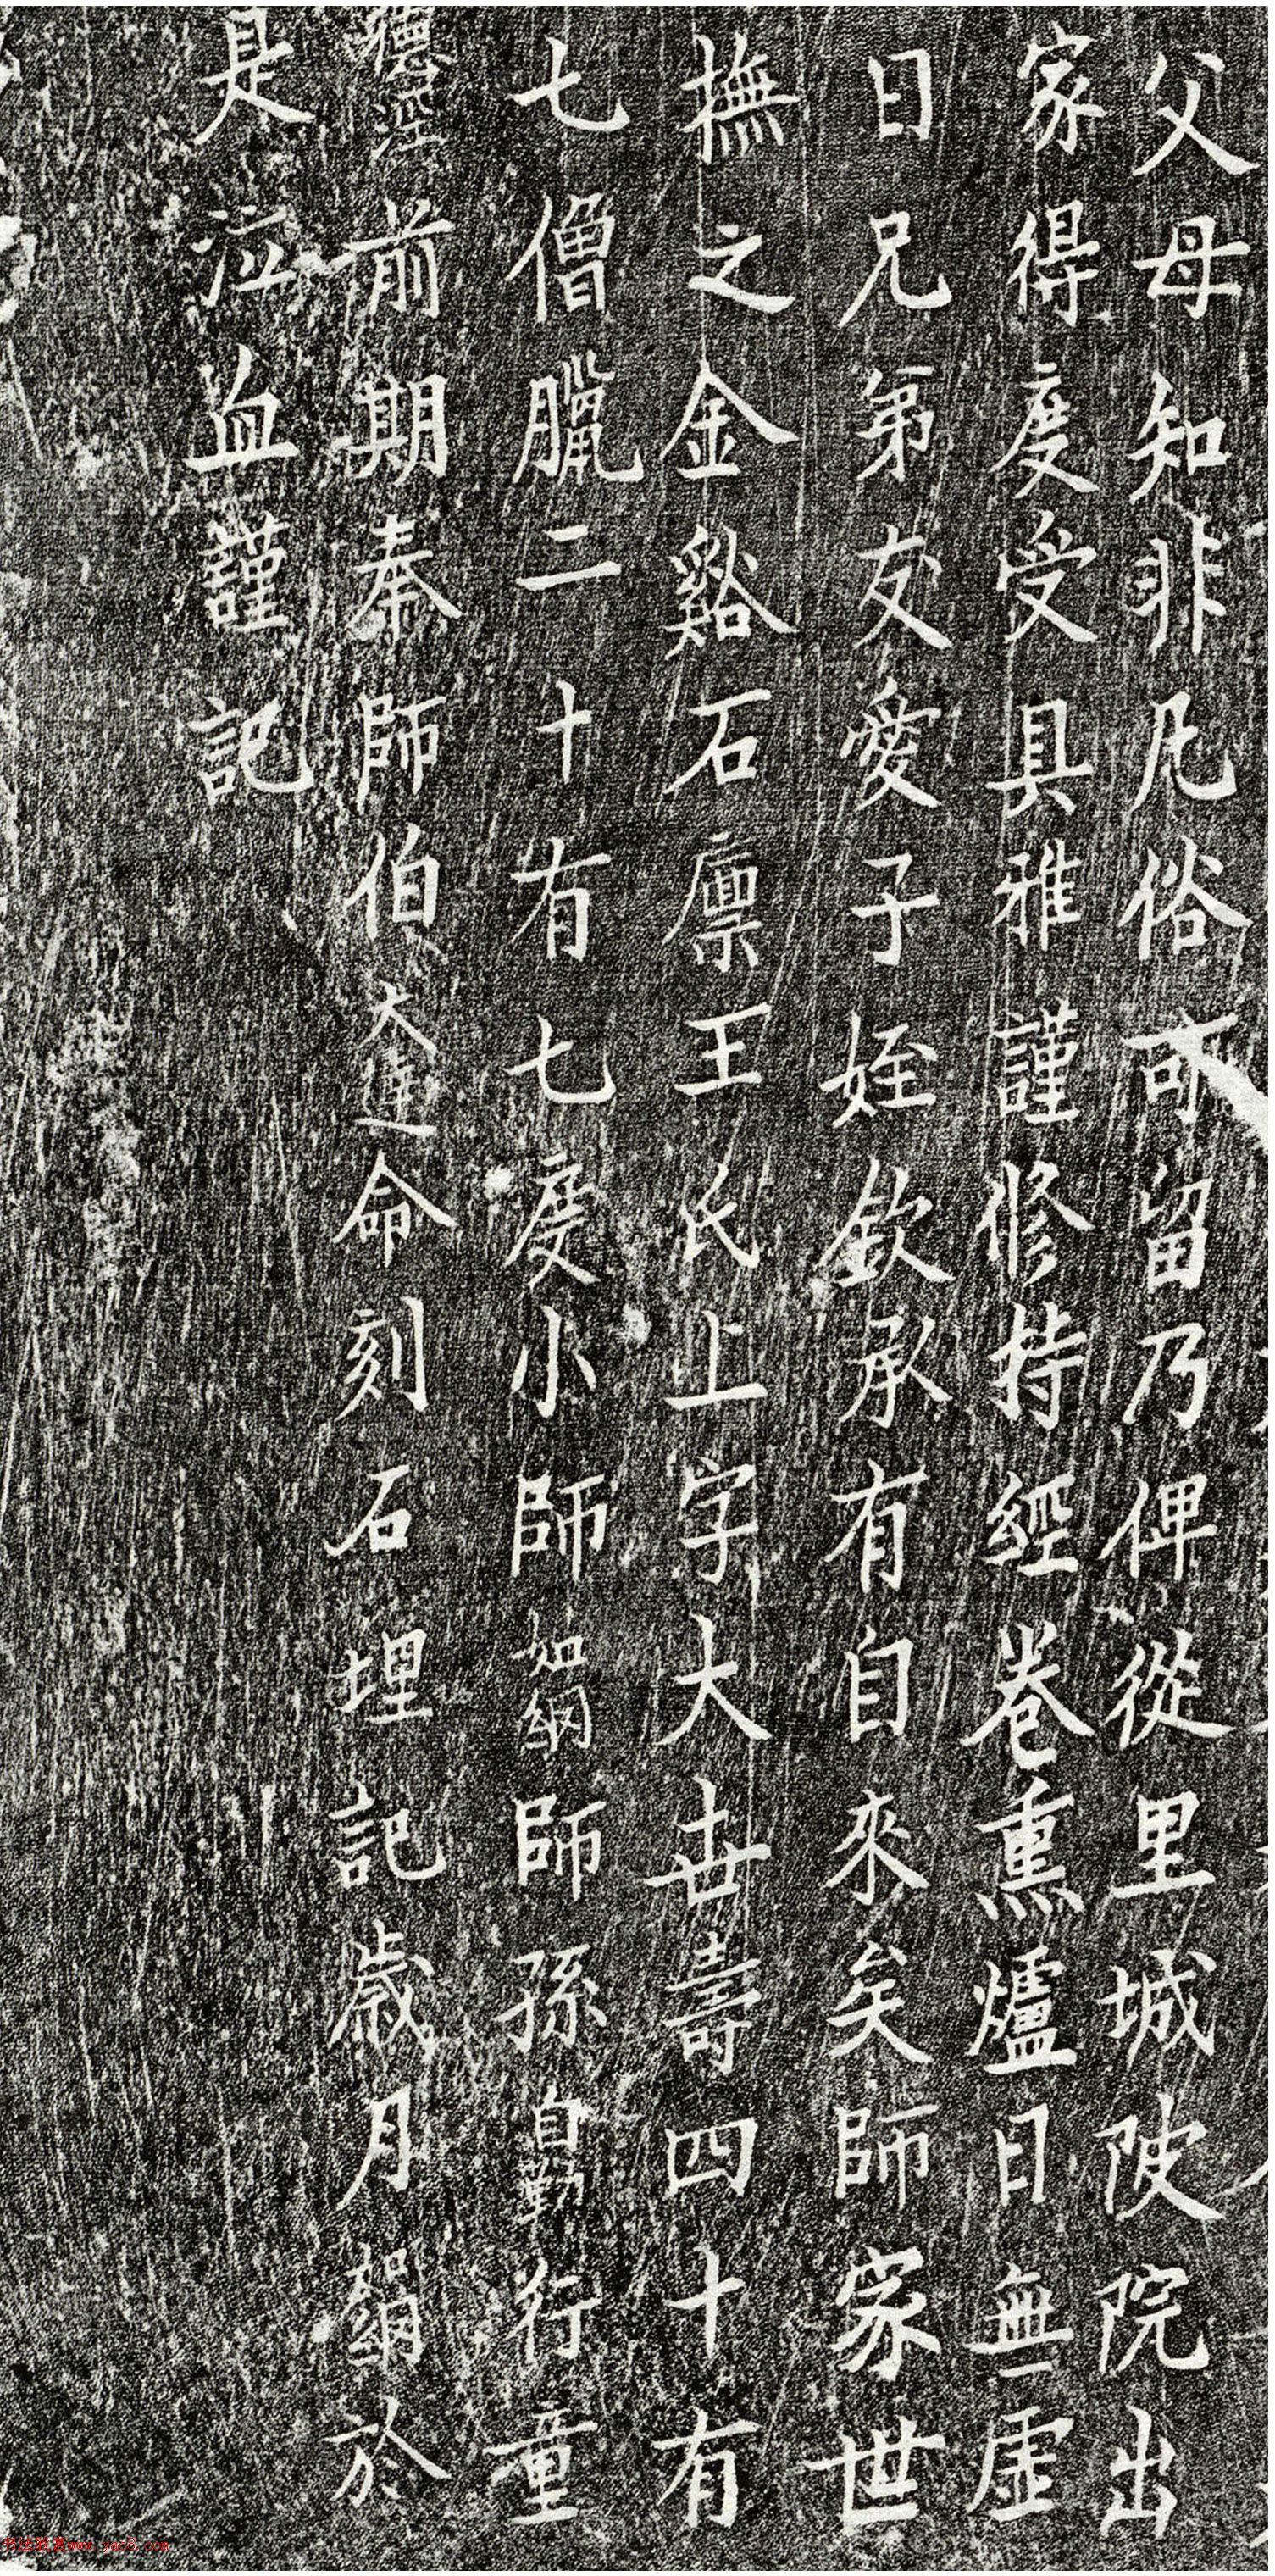 父母知非凡俗可留乃俾從里城陂院出
家得度受具雅謹修持經卷熏爐日無虛
日兄弟友愛子姪欽承有自來矣師家世
撫之金谿石廪王氏上字大十世壽四十有
七僧臘二十有七度小師如綱師孫自勤行童
前期奉師伯大達命刻石埋記歲月綱於
是泣血謹記